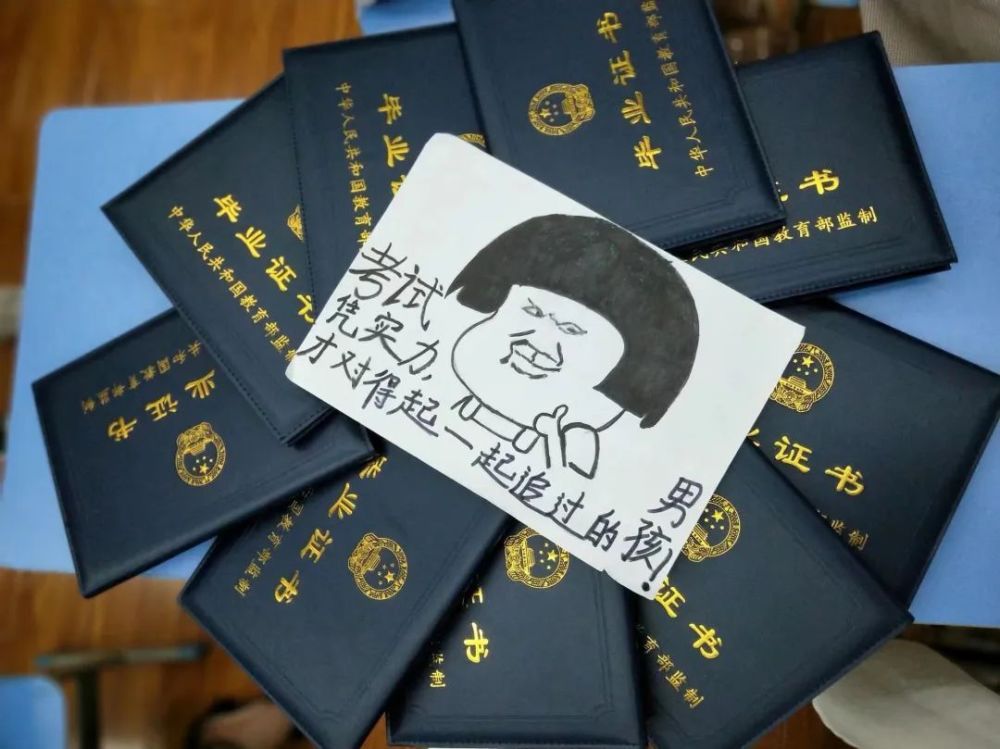 考试
凭实力,
才对得起一起追过的男孩!
毕业证书
中华人民共和国教育部监
毕业
中华人民共和国教育部
毕业证书
中华人民共和国教育部监制
证书
民共和国教育部监制
业证书
共和国教育部监制
毕业证书
中国教育部监制
证书
监制
业证书
监制
证书
教育部监制